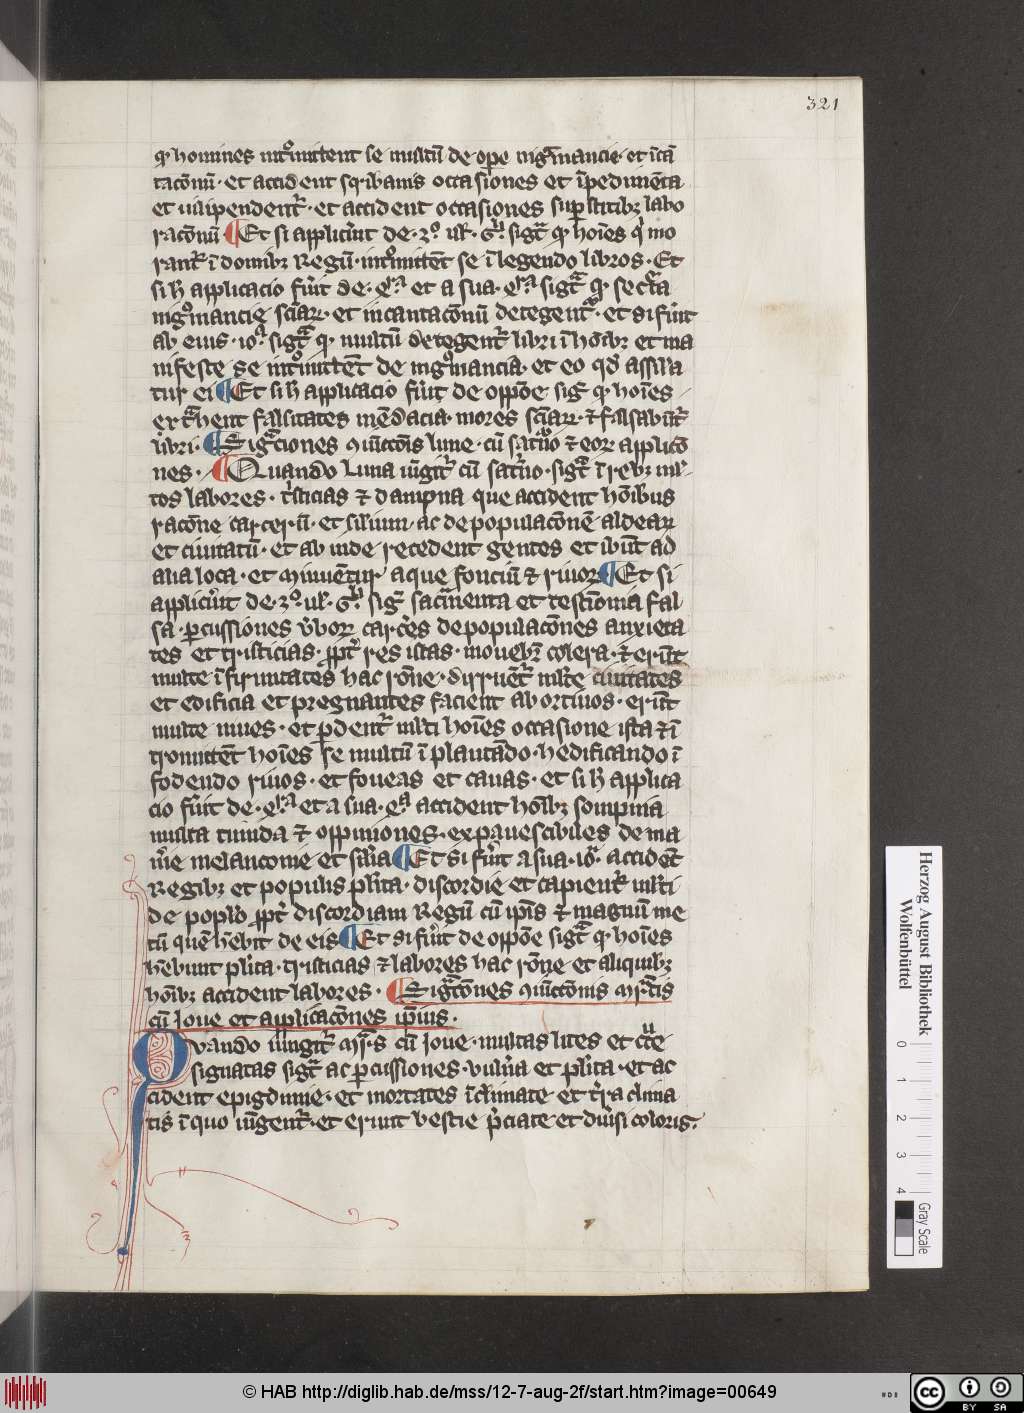 321
ꝙ homines intromittent se multū de ope nigromancie · et īcā
tacōnū · et accident scribanis occasiones et īpedimēta
et vilipendentr̄ · et accident occasiones superstitibꝫ labo
racōnū ¶ Et si applicūit de · 3º · ul̄ · 6º · sigt̄ ꝙ hoīes qͥ mo
rantr̄ ī domibꝫ Regū · intromittēt se ī legendo libros · Et
si h̄ applicacio fūit de · qͬᵃ et a sua · qͬᵃ sigt̄ ꝙ secta
nigromancie sciar̄ · et incantacōnū detegentr̄ · et si fūit
ab eius · 10ᵃ · sigt̄ ꝙ multū detegentr̄ libri ī hōibꝫ et ma
nifeste se intromittēt de nigromancia · et eo qd̄ assil̄a
tur ei ¶ Et si h̄ applicacio fūit de oppōe sigt̄ ꝙ hoīes ·
extͣhent falsitates mēdacia · mores sciar̄ · ⁊ falsabūt
libri · ¶ Sigͣciones iūctōis lune · cū sat̄no ⁊ eoꝝ applicō
nes · ¶ Quando Luna iūgitr̄ cū sat̄no · sigt̄ ī rebꝫ ml̄
tos labores · tristicias ⁊ dampna que accident hōibus
racōne carcerū · et similium · ac depopulacōnē aldeaꝝ
et ciuitatū · et ab inde recedent gentes et ibūt ad
alia loca · et minuētur aque fonciū ⁊ riuoꝝ ¶ Et si
applicūit de · 3º · ul̄ · 6º · sigt̄ sacͣmenta et testīonia fal
sa · ꝑcussiones v̄boꝝ carceres depopulacōnes anxieta
tes et tristicias · ꝓpt̄ res istas · mouebr̄ colera · ⁊ erūt
multe īfirmitates hac rōne · dirruētr̄ ml̄te ciuitates
et edificia et pregnantes facient abortiuos · erūt
multe niues · et ꝑdentr̄ ml̄ti hoīes occasione ista ⁊ ī
tromittēt hoīes se multū ī plantādo · hedificando ī
fodendo riuos · et foueas et cauas · et si h̄ applica
cio fūit de · qͬᵃ et a sua · qᵃ accident hōibꝫ sompnia
multa timida ⁊ oppiniones · expauescibiles de ma
t̄ie melancome et sil̄ia ¶ Et si fūit a sua · 10ᵃ · accidēt
Regibꝫ et populis pl̄ita · discordie et capientr̄ ml̄ti
de poplō ꝓpt̄ discordiam Regū cū ip̄is ⁊ magnū me
tū quē hēbit de eis ¶ Et si fūit de oppōe sigt̄ ꝙ hoīes
hēbunt pl̄ita · tristicias ⁊ labores hac rōne et aliquibꝫ
hōibꝫ accident labores · ¶ Sigͣcōnes iūctōnis mͣrtis
cū Joue et applicacōnes ip̄ius ·
Quando iūngitr̄ mͣrs cū Joue · multas lites et cͤte
signatas sigt̄ ac ꝑcussiones · vuln̄a et pl̄ita · et ac
cident epigdimie · et mortates ī climate et t̄ra clima
tis ī quo iūgentr̄ · et erunt vestie p̄ciate et diūsi coloris ·
Herzog August Bibliothek
Wolfenbüttel
0 1 2 3 4
Gray Scale
© HAB http://diglib.hab.de/mss/12-7-aug-2f/start.htm?image=00649
cc BY SA